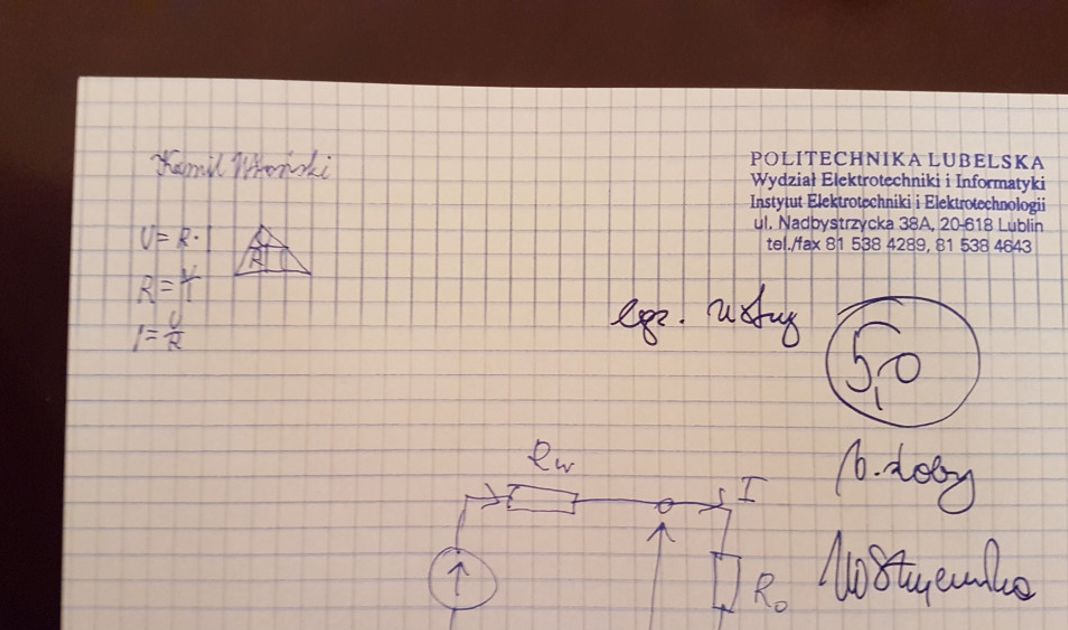 Kamil
POLITECHNIKA LUBELSKA
Wydział Elektrotechniki i Informatyki
Instytut Elektrotechniki i Elektrotechnologii
ul. Nadbystrzycka 38A, 20-618 Lublin
tel./fax 81 538 4289, 81 538 4643
U = R · I
R I
R =
I = U/R
egz.
5,0
b. dobry
Rw
I
Ro